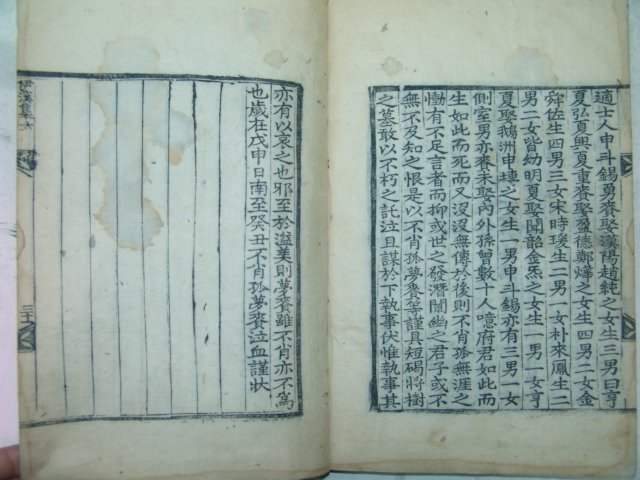 適士人申斗錫勇賚娶漢陽趙純之女生三男曰亨
夏弘夏興夏重賚娶盈德鄭燁之女生四男二女金
舜佐生四男三女宋時璞生二男一女朴來鳳生二
男二女皆幼明夏娶聞韶金炅之女生一男一女亨
夏娶鵝洲申㙉之女生一男申斗錫亦有三男一女
側室男亦賚未娶內外孫曾數十人噫府君如此而
生如此而死而又沒沒無傳於後則不肖孤無涯之
慟有不足言者而抑或世之發潛闡幽之君子或不
無不及知之恨是以不肖孤夢賚等謹具短碣將樹
之墓敢以不朽之託泣且謀於下執事伏惟執事其
亦有以哀之也邪至於溢美則夢賚雖不肖亦不爲
也歲在戊申日南至癸丑不肖孤夢賚泣血謹狀
伊溪集六
三十